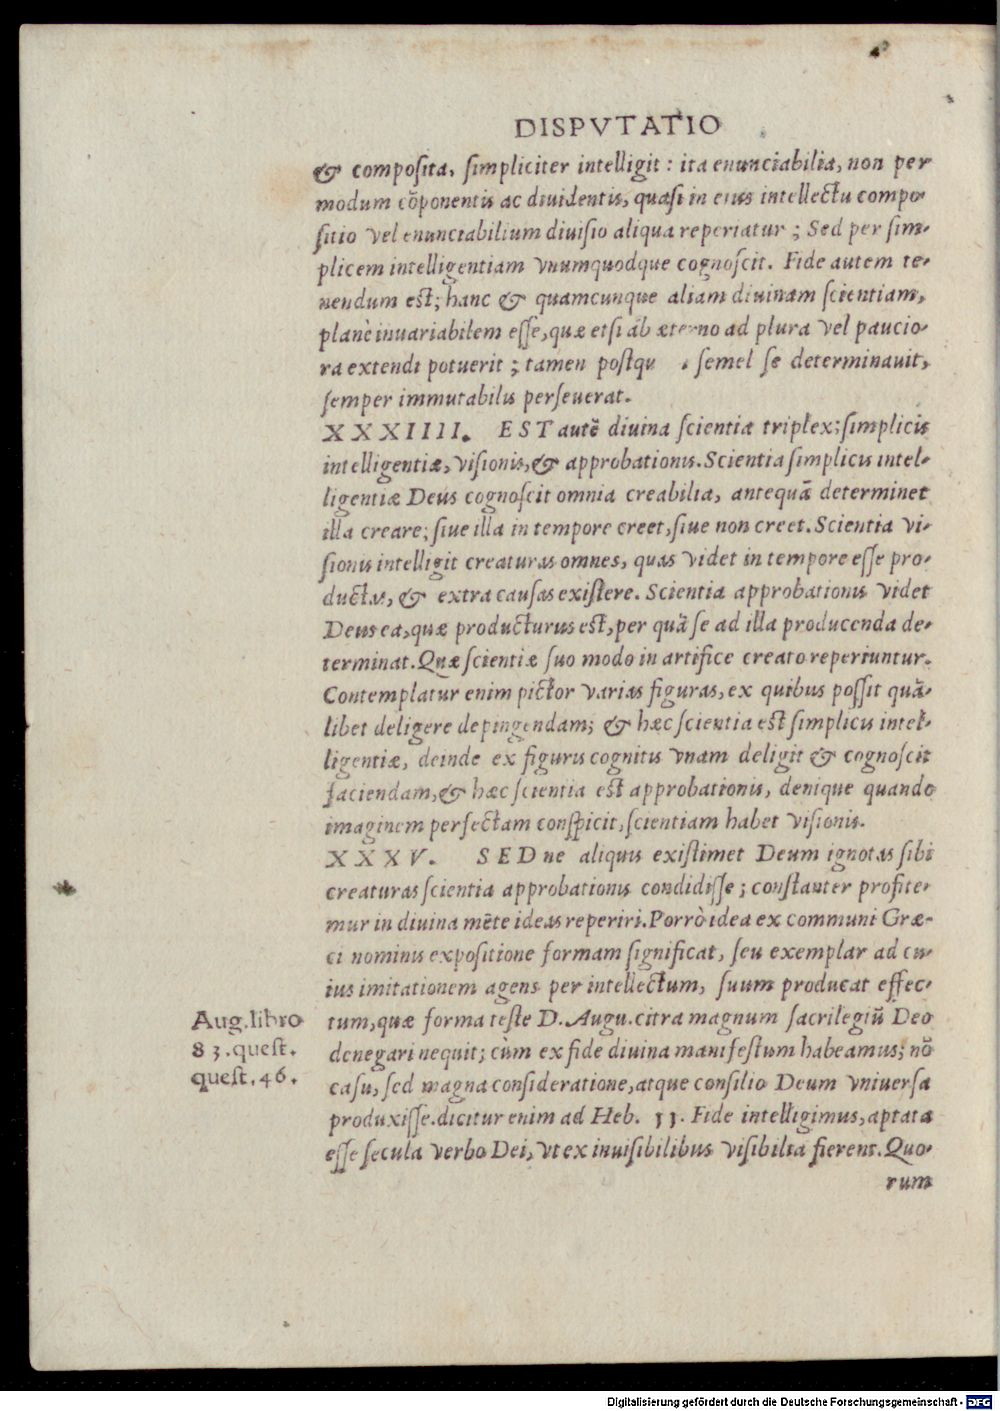 DISPVTATIO
& composita, simpliciter intelligit: ita enunciabilia, non per
modum cōponentis ac diuidentis, quasi in eius intellectu compo-
sitio vel enunciabilium diuisio aliqua reperiatur; Sed per sim-
plicem intelligentiam vnumquodque cognoscit. Fide autem te-
nendum est; hanc & quamcunque aliam diuinam scientiam,
planè inuariabilem esse, quæ etsi ab æterno ad plura vel paucio-
ra extendi potuerit; tamen semel se determinauit,
semper immutabilis perseuerat.
XXXIIII. EST autē diuina scientia triplex; simplicis
intelligentiæ, visionis, & approbationis. Scientia simplicis intel-
ligentiæ Deus cognoscit omnia creabilia, antequā determinet
illa creare; siue illa in tempore creet, siue non creet. Scientia vi-
sionis intelligit creaturas omnes, quas videt in tempore esse pro-
ductas, & extra causas existere. Scientia approbationis videt
Deus ea, quæ producturus est, per quā se ad illa producenda de-
terminat. Quæ scientiæ suo modo in artifice creato reperiuntur.
Contemplatur enim pictor varias figuras, ex quibus possit quā-
libet deligere depingendam; & hæc scientia est simplicis intel-
ligentiæ, deinde ex figuris cognitis vnam deligit & cognoscit
faciendam, & hæc scientia est approbationis, denique quando
imaginem perfectam conspicit, scientiam habet visionis.
XXXV. SED ne aliquis existimet Deum ignotas sibi
creaturas scientia approbationis condidisse; constanter profite-
mur in diuina mēte ideas reperiri. Porrò idea ex communi Græ-
ci nominis expositione formam significat, seu exemplar ad cu-
ius imitationem agens per intellectum, suum producat effec-
tum, quæ forma teste D. Augu. citra magnum sacrilegiū Deo
denegari nequit; cùm ex fide diuina manifestum habeamus; nō
casu, sed magna consideratione, atque consilio Deum vniuersa
produxisse. dicitur enim ad Heb. 11. Fide intelligimus, aptata
esse secula verbo Dei, vt ex inuisibilibus visibilia fierent. Quo-
rum
Aug. libro
83. quest.
quest. 46.
Digitalisierung gefördert durch die Deutsche Forschungsgemeinschaft - DFG